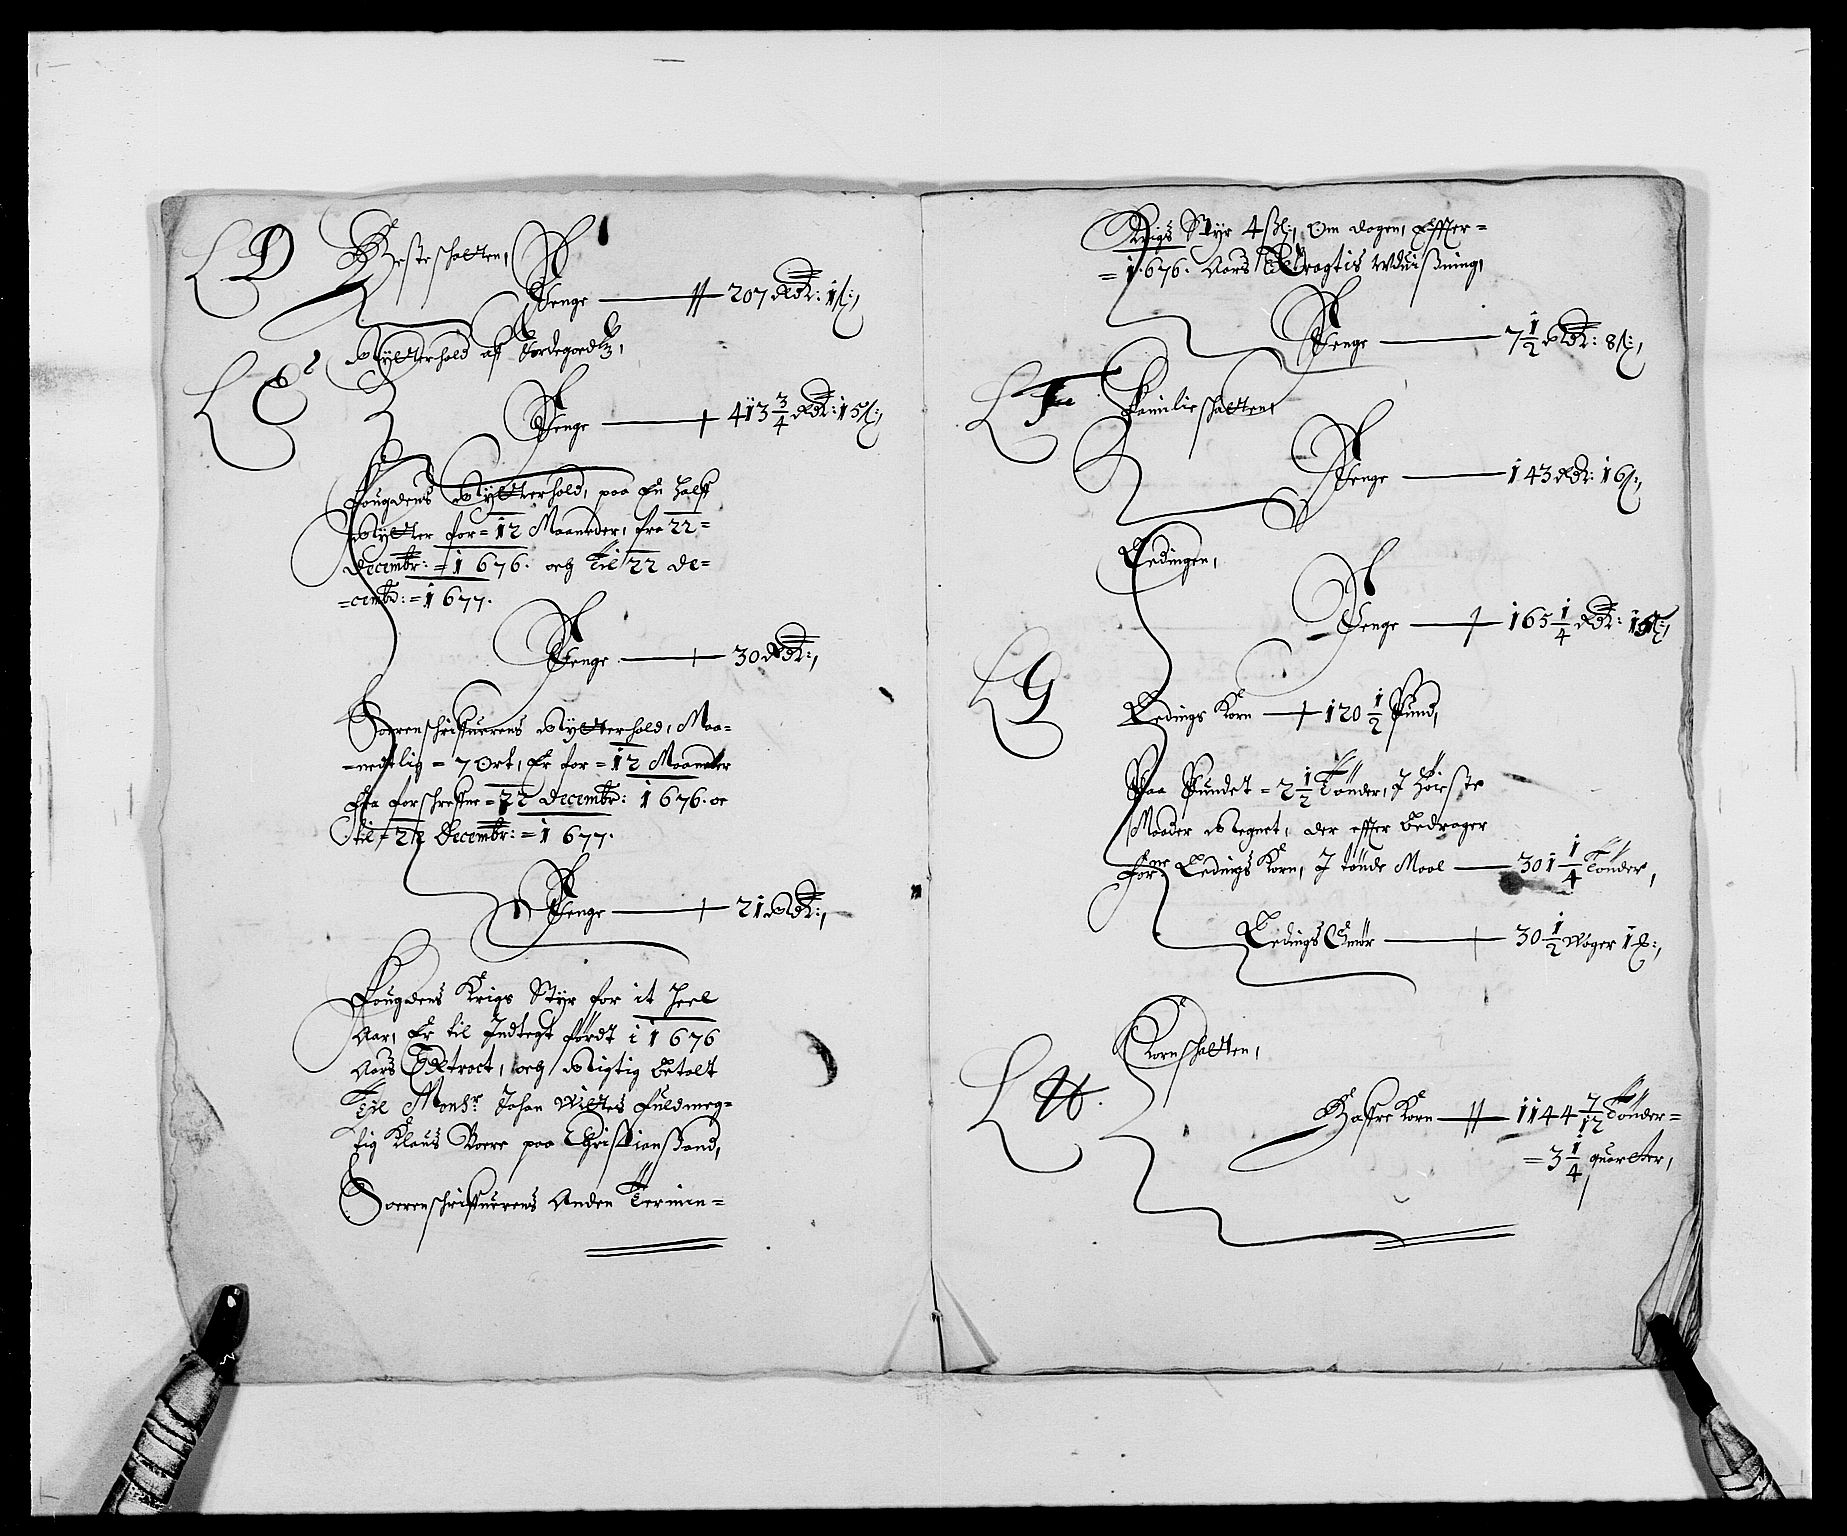 L D
Hesteschatten,
Penge — 207 Rdr: 1 s:,
L E
Rytterhold af Jordegoedtz,
Penge — 413 3/4 Rdr: 15 s:,
Fougdens Rytterhold, paa En halff
Rytter for = 12 Maaneder, fra 22 =
Decembr: = 1676. och til 22 De=
=cembr: = 1677.
Penge — 30 Rdr:,
Soerenschriffuerens Rytterhold, Maa=
=nedtlig = 7 Ort, Er for = 12 Maaneder
Fra forschreffne = 22 Decembr: 1676. oc
til = 22 Decembr: = 1677.
Penge — 21 Rdr:,
Fougdens Krigs Styr for it heel
Aar, Er til Indtegt ført i 1676
Aars Extract, och Rigtig betalt
Til Monsr Johan Wiltes fuldmeg=
tig Klaus Boere paa Christianssand,
Soerenschriffuerens Anden Termin=
Krigs Styr 4 sk:, Om dagen, Effter=
= 1676. Aars Extragtis Wduissning,
Penge — 7 1/2 Rdr: 8 s:,
L F
Familieschatten,
Penge — 143 Rdr: 16 s:,
Ledingen,
Penge — 165 1/4 Rdr: 15 s:,
L G
Ledings Korn — 120 1/2 Pund,
Paa Pundet = 2 1/2 Tønder, I høieste
Maader Regnet, der effter bedrager
forne Ledings Korn, I tønde Maal — 301 1/4 Tønder,
Ledings Smør — 30 1/2 Woger 1 lb:,
L H.
Kornschatten,
Haffre Korn — 1144 7/12 Tønder =
= 3 1/4 quarter,